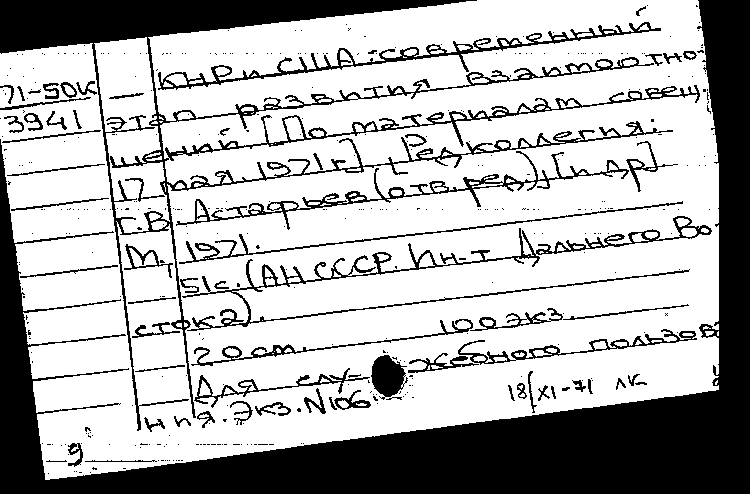 КНР и США: современный
71-50к — этап развития взаимоотно-
3941 шений [По материалам совещ.
17 мая. 1971 г.], Редколлегия:
Г.В. Астафьев (отв. ред.), [и др].
М., 1971.
51с. (АН СССР. Ин-т Дальнего Во-
стока).
20 см. 100 экз.
Для служебного пользова
ния. Экз. N106
18/XI-71 ЛК
9